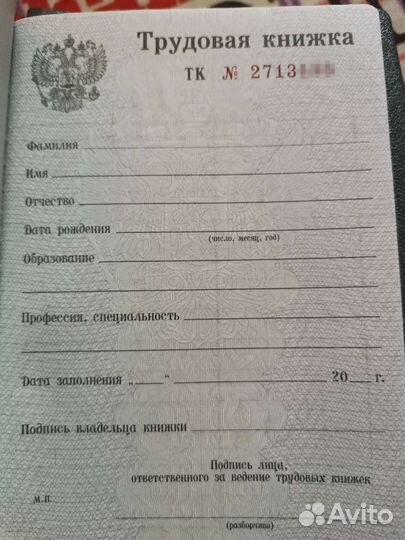 Трудовая книжка
ТК № 2713
Фамилия
Имя
Отчество
Дата рождения
(число, месяц, год)
Образование
Профессия, специальность
Дата заполнения „ “ 20 г.
Подпись владельца книжки
Подпись лица,
ответственного за ведение трудовых книжек
М.П.
(разборчиво)
Avito